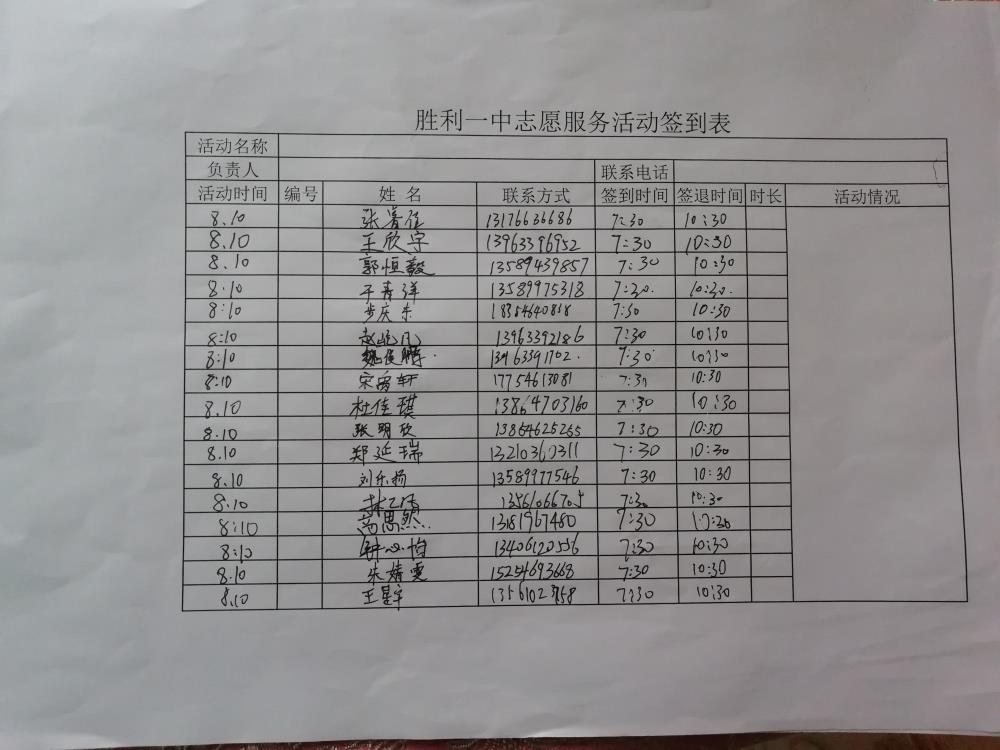 胜利一中志愿服务活动签到表
活动名称
负责人 联系电话
活动时间 编号 姓名 联系方式 签到时间 签退时间 时长 活动情况
8.10 13176636686 7:30 10:30
8.10 王欣宇 13963396952 7:30 10:30
8.10 郭恒毅 13589439857 7:30 10:30
8:10 于青洋 13589975318 7:30. 10:30.
8:10 步庆东 18354640818 7:30 10:30
8:10 13963392186 7:30 10:30
8:10 魏俊鹏. 13963391702. 7:30 10:30
8:10 宋禹轩 17754613081 7:30 10:30
8.10 杜佳琪 13864703160 7:30 10:30
8.10 张明欣 13864625255 7:30 10:30
8.10 郑延瑞 13210360311 7:30 10:30
8.10 刘乐扬 13589977546 7:30 10:30
8:10 13561066705 7:30 10:30
8:10 高思然.. 13181967480 7:30 10:30
8:10 钟心怡 13406120556 7:30 10:30
8.10 朱婧雯 15254693668 7:30 10:30
8.10 王星宇 7:30 10:30